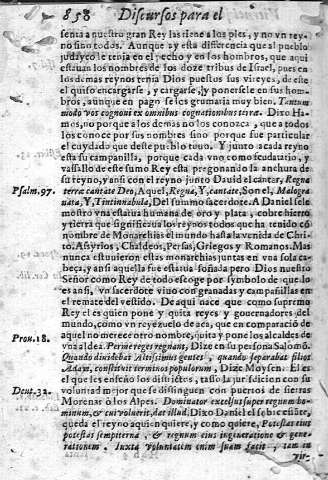 858 Discursos para el
senta a nuestro gran Rey las tiene a los pies, y no vn reyno sino todos. Aunque ay esta diferencia que al pueblo
judayco le tenia en el pecho y en los hombros, que aqui
estauan los nombres de los doze tribus de Israel, pues en
los demas reynos tenia Dios puestos sus vireyes, de este
el quiso encargarse, y cargarse, y ponersele en sus hombros, aunque en pago se les grumaria muy bien. Tantum
modo vos cognoui ex omnibus cognationibus terræ. Dixo
no porque a los demas no los conozca, que a todos
los conoce por sus nombres sino porque fue particular
el cuydado que deste pueblo tuuo. Y junto a cada reyno
esta su campanilla, porque cada vno como
vassallo deste sumo Rey esta pregonando la anchura de
su reyno, y ansi con el reyno junto Dauid el cantar, Regna
Psalm.97. terræ cantate Deo, Aquel, Regna, Y, cantate, Son el,
Y, Tintinnabula, Del summo sacerdote. A Daniel se le
mostro vna estatua humana de oro y plata, cobre hierro
y tierra que significaua los reynos todos que ha tenido
nombre de Monarchias el mundo hasta la venida de Christo.
Assyrios, Chaldeos, Persas, Griegos y Romanos. Mas
nunca estuuieron estas monarchias juntas en vna sola cabeça, y ansi aquella fue estatua soñada pero Dios nuestro
Señor como Rey de todo escoge por symbolo de que lo
es ansi, vn sacerdote viuo con granadas y campanillas en
el remate del vestido. De aqui nace que como supremo
Rey el es quien pone y quita reyes y gouernadores del
mundo, como vn reyezuelo de aca, que en comparacion de
aquel no merece otro nombre, quita y pone los alcaldes de
Prou.18. vna aldea. Per me reges regnant, Dize en su persona Salomõ.
Quando diuidebat Altissimus gentes, quando separabat filios
Adam, constituit terminos populorum, Dize Moysen. El es
el que les enseño los districtos, tasso la jurisdicion con su
Deut.32. voluntad mejor que se distinguen con puertos de sierras
Morenas ò los Alpes. Dominator excelsus super regnum hominum, & cui voluerit, dat illud. Dixo Daniel
queda el reyno a quien quiere, y como quiere, Potestas eius
potestas sempiterna, & regnum eius in generatione & generationem. Iuxta voluntatem enim suam facit, tam in
vir-